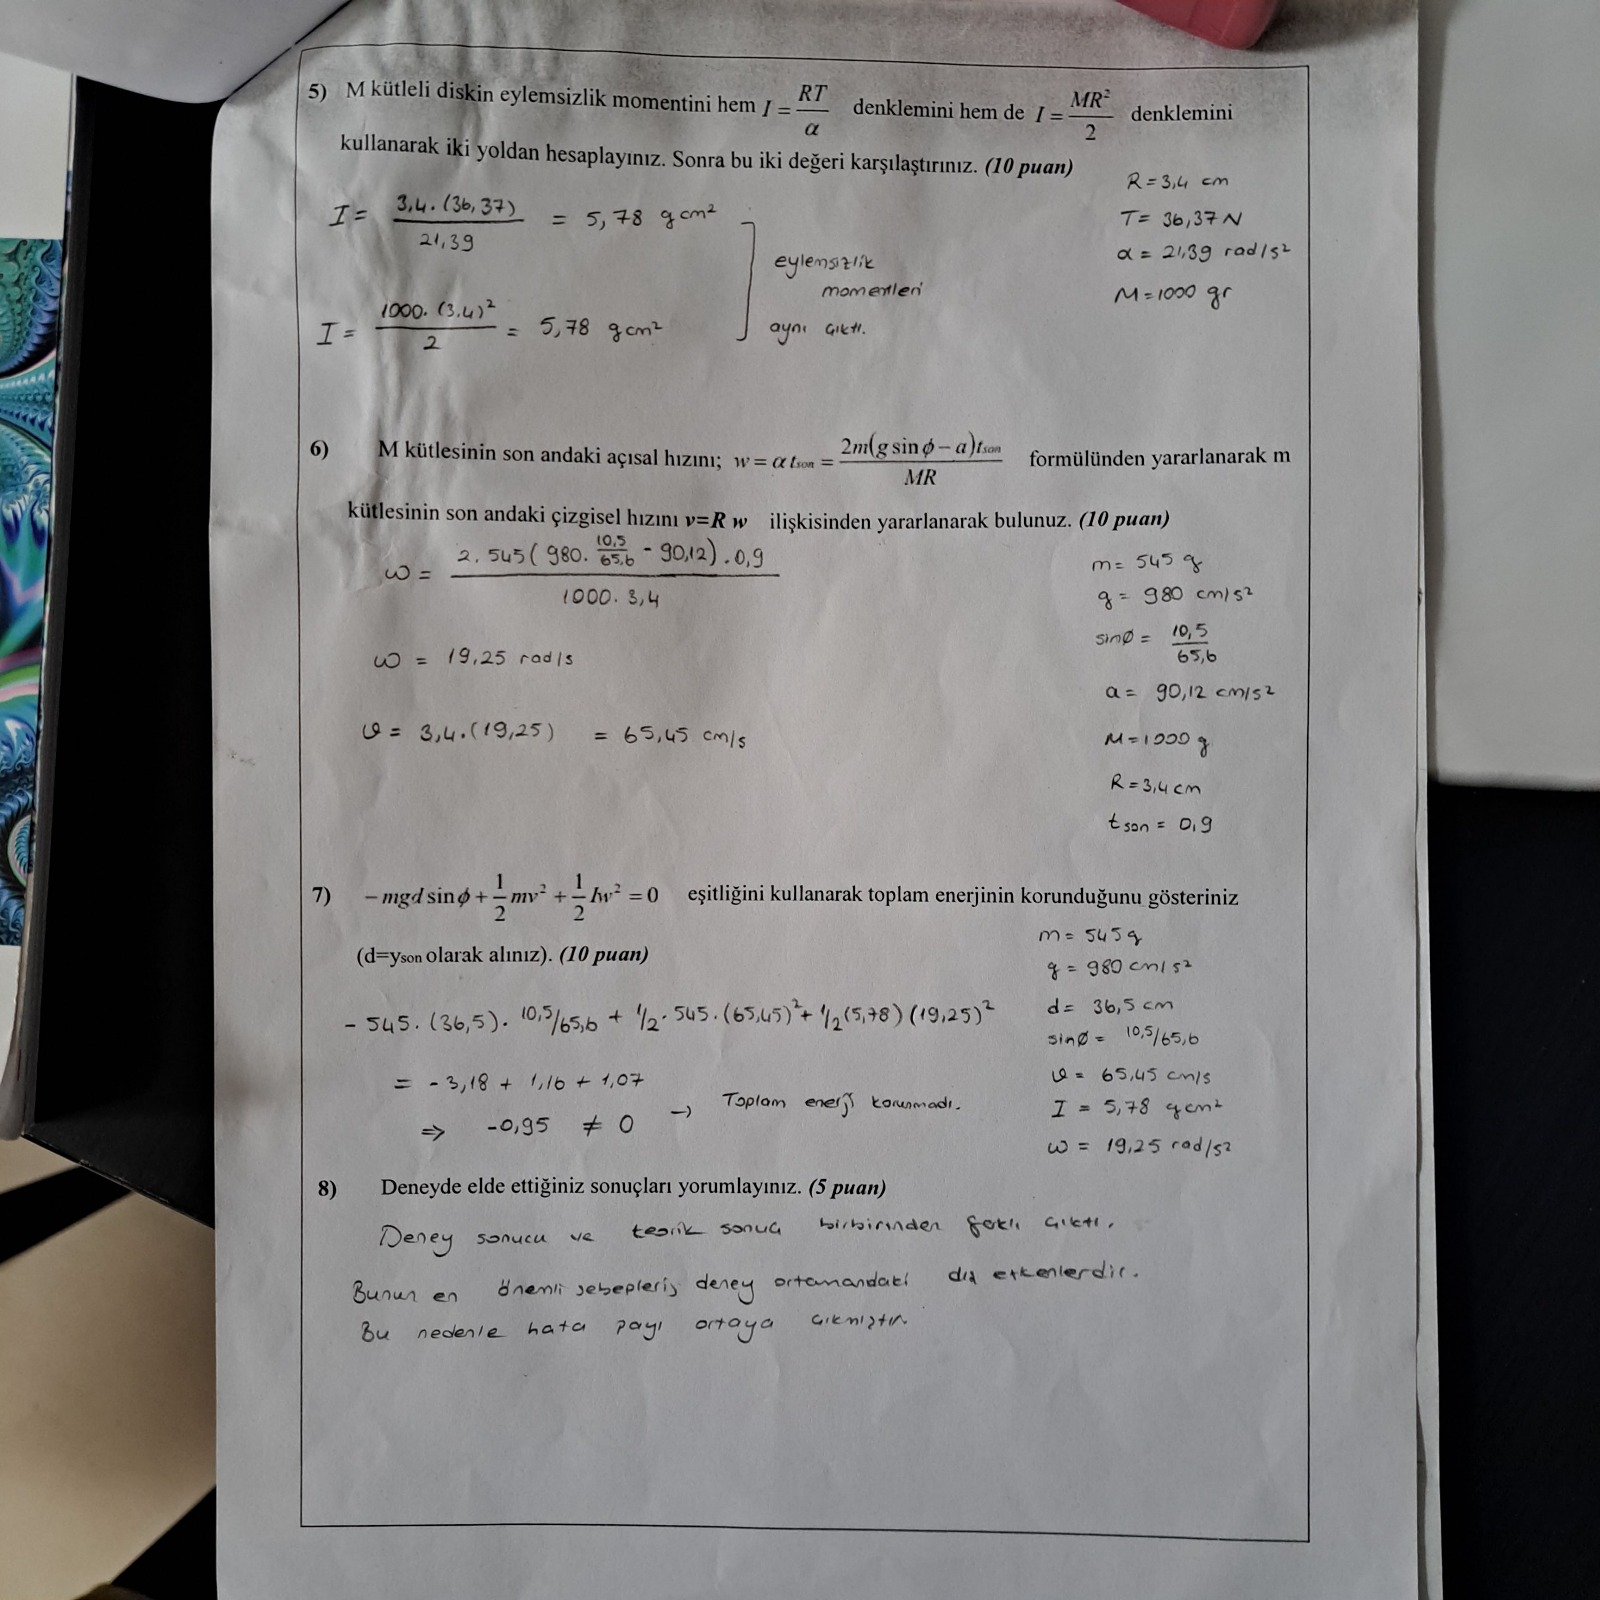 5) M kütleli diskin eylemsizlik momentini hem I = RT/α denklemini hem de I = MR²/2 denklemini
kullanarak iki yoldan hesaplayınız. Sonra bu iki değeri karşılaştırınız. (10 puan)
R = 3,4 cm
T = 36,37 N
α = 21,39 rad/s²
M = 1000 gr
I = 3,4.(36,37)/21,39 = 5,78 gcm²
I = 1000.(3,4)²/2 = 5,78 gcm²
eylemsizlik
momentleri
aynı çıktı.
6) M kütlesinin son andaki açısal hızını; w = α tson = 2m(g sin ϕ – a)tson/MR formülünden yararlanarak m
kütlesinin son andaki çizgisel hızını v=R w ilişkisinden yararlanarak bulunuz. (10 puan)
ω = 2.545(980. 10,5/65,6 - 90,12).0,9/1000.3,4
ω = 19,25 rad/s
ϑ = 3,4.(19,25) = 65,45 cm/s
m = 545 g
g = 980 cm/s²
sinØ = 10,5/65,6
a = 90,12 cm/s²
M = 1000 g
R = 3,4 cm
tson = 0,9
7) – mgd sin ϕ + 1/2 mv² + 1/2 Iw² = 0 eşitliğini kullanarak toplam enerjinin korunduğunu gösteriniz
(d=yson olarak alınız). (10 puan)
m = 545 g
g = 980 cm/s²
d = 36,5 cm
sinØ = 10,5/65,6
ϑ = 65,45 cm/s
I = 5,78 gcm²
ω = 19,25 rad/s²
- 545.(36,5). 10,5/65,6 + 1/2.545.(65,45)² + 1/2(5,78)(19,25)²
= - 3,18 + 1,16 + 1,07
⇒ -0,95 ≠ 0 → Toplam enerji korunmadı.
8) Deneyde elde ettiğiniz sonuçları yorumlayınız. (5 puan)
Deney sonucu ve teorik sonuç birbirinden farklı çıktı.
Bunun en önemli sebepleri; deney ortamandaki dış etkenlerdir.
Bu nedenle hata payı ortaya çıkmıştır.